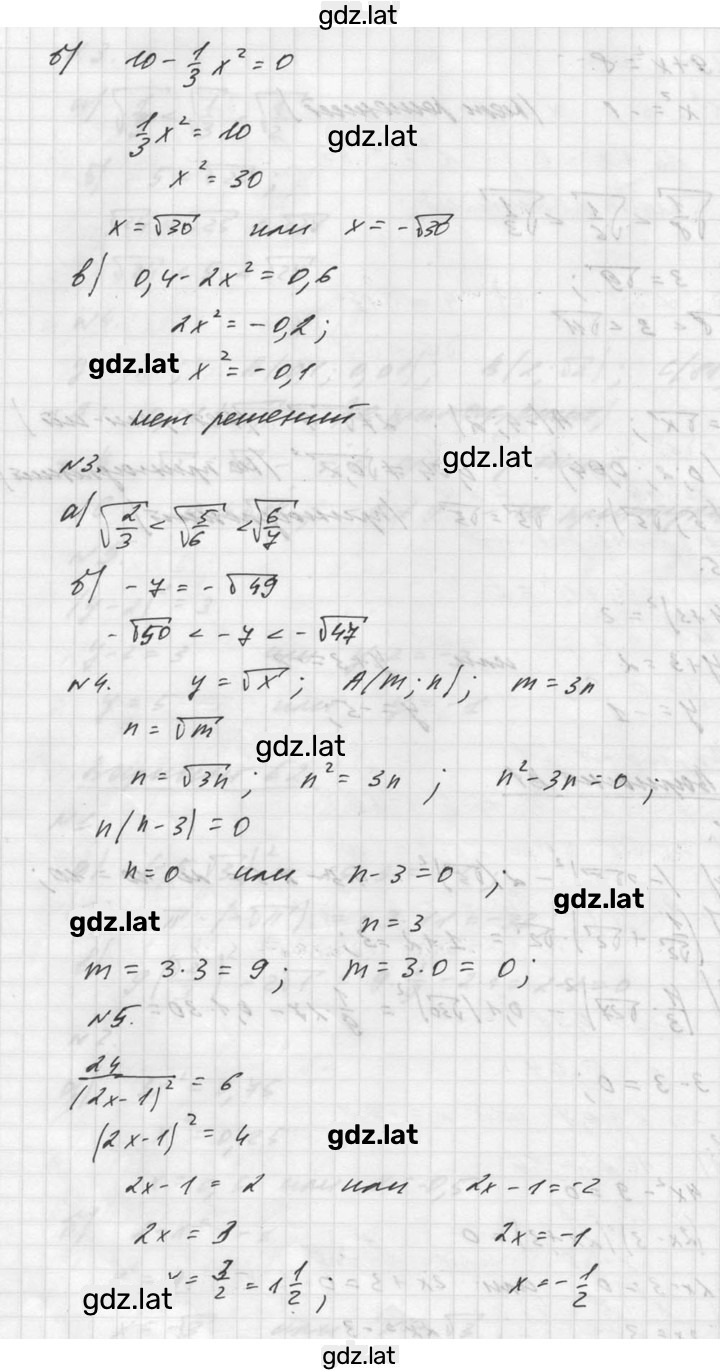 gdz.lat
б) 10 - 1/3 x² = 0
1/3 x² = 10
gdz.lat
x² = 30
x = √30 или x = -√30
в) 0,4 - 2x² = 0,6
2x² = -0,2;
gdz.lat
x² = -0,1
нет решений
gdz.lat
№3.
а) √(2/3) < √(5/6) < √(6/7)
б) -7 = -√49
-√50 < -7 < -√47
№4. y = √x; A(m; n); m = 3n
n = √m
gdz.lat
n = √3n; n² = 3n; n² - 3n = 0;
n(n-3) = 0
n = 0 или n - 3 = 0;
gdz.lat
gdz.lat
n = 3
m = 3·3 = 9; m = 3·0 = 0;
№5.
24/(2x-1)² = 6
(2x-1)² = 4
gdz.lat
2x - 1 = 2 или 2x - 1 = -2
2x = 3 2x = -1
x = 3/2 = 1 1/2; x = -1/2
gdz.lat
gdz.lat